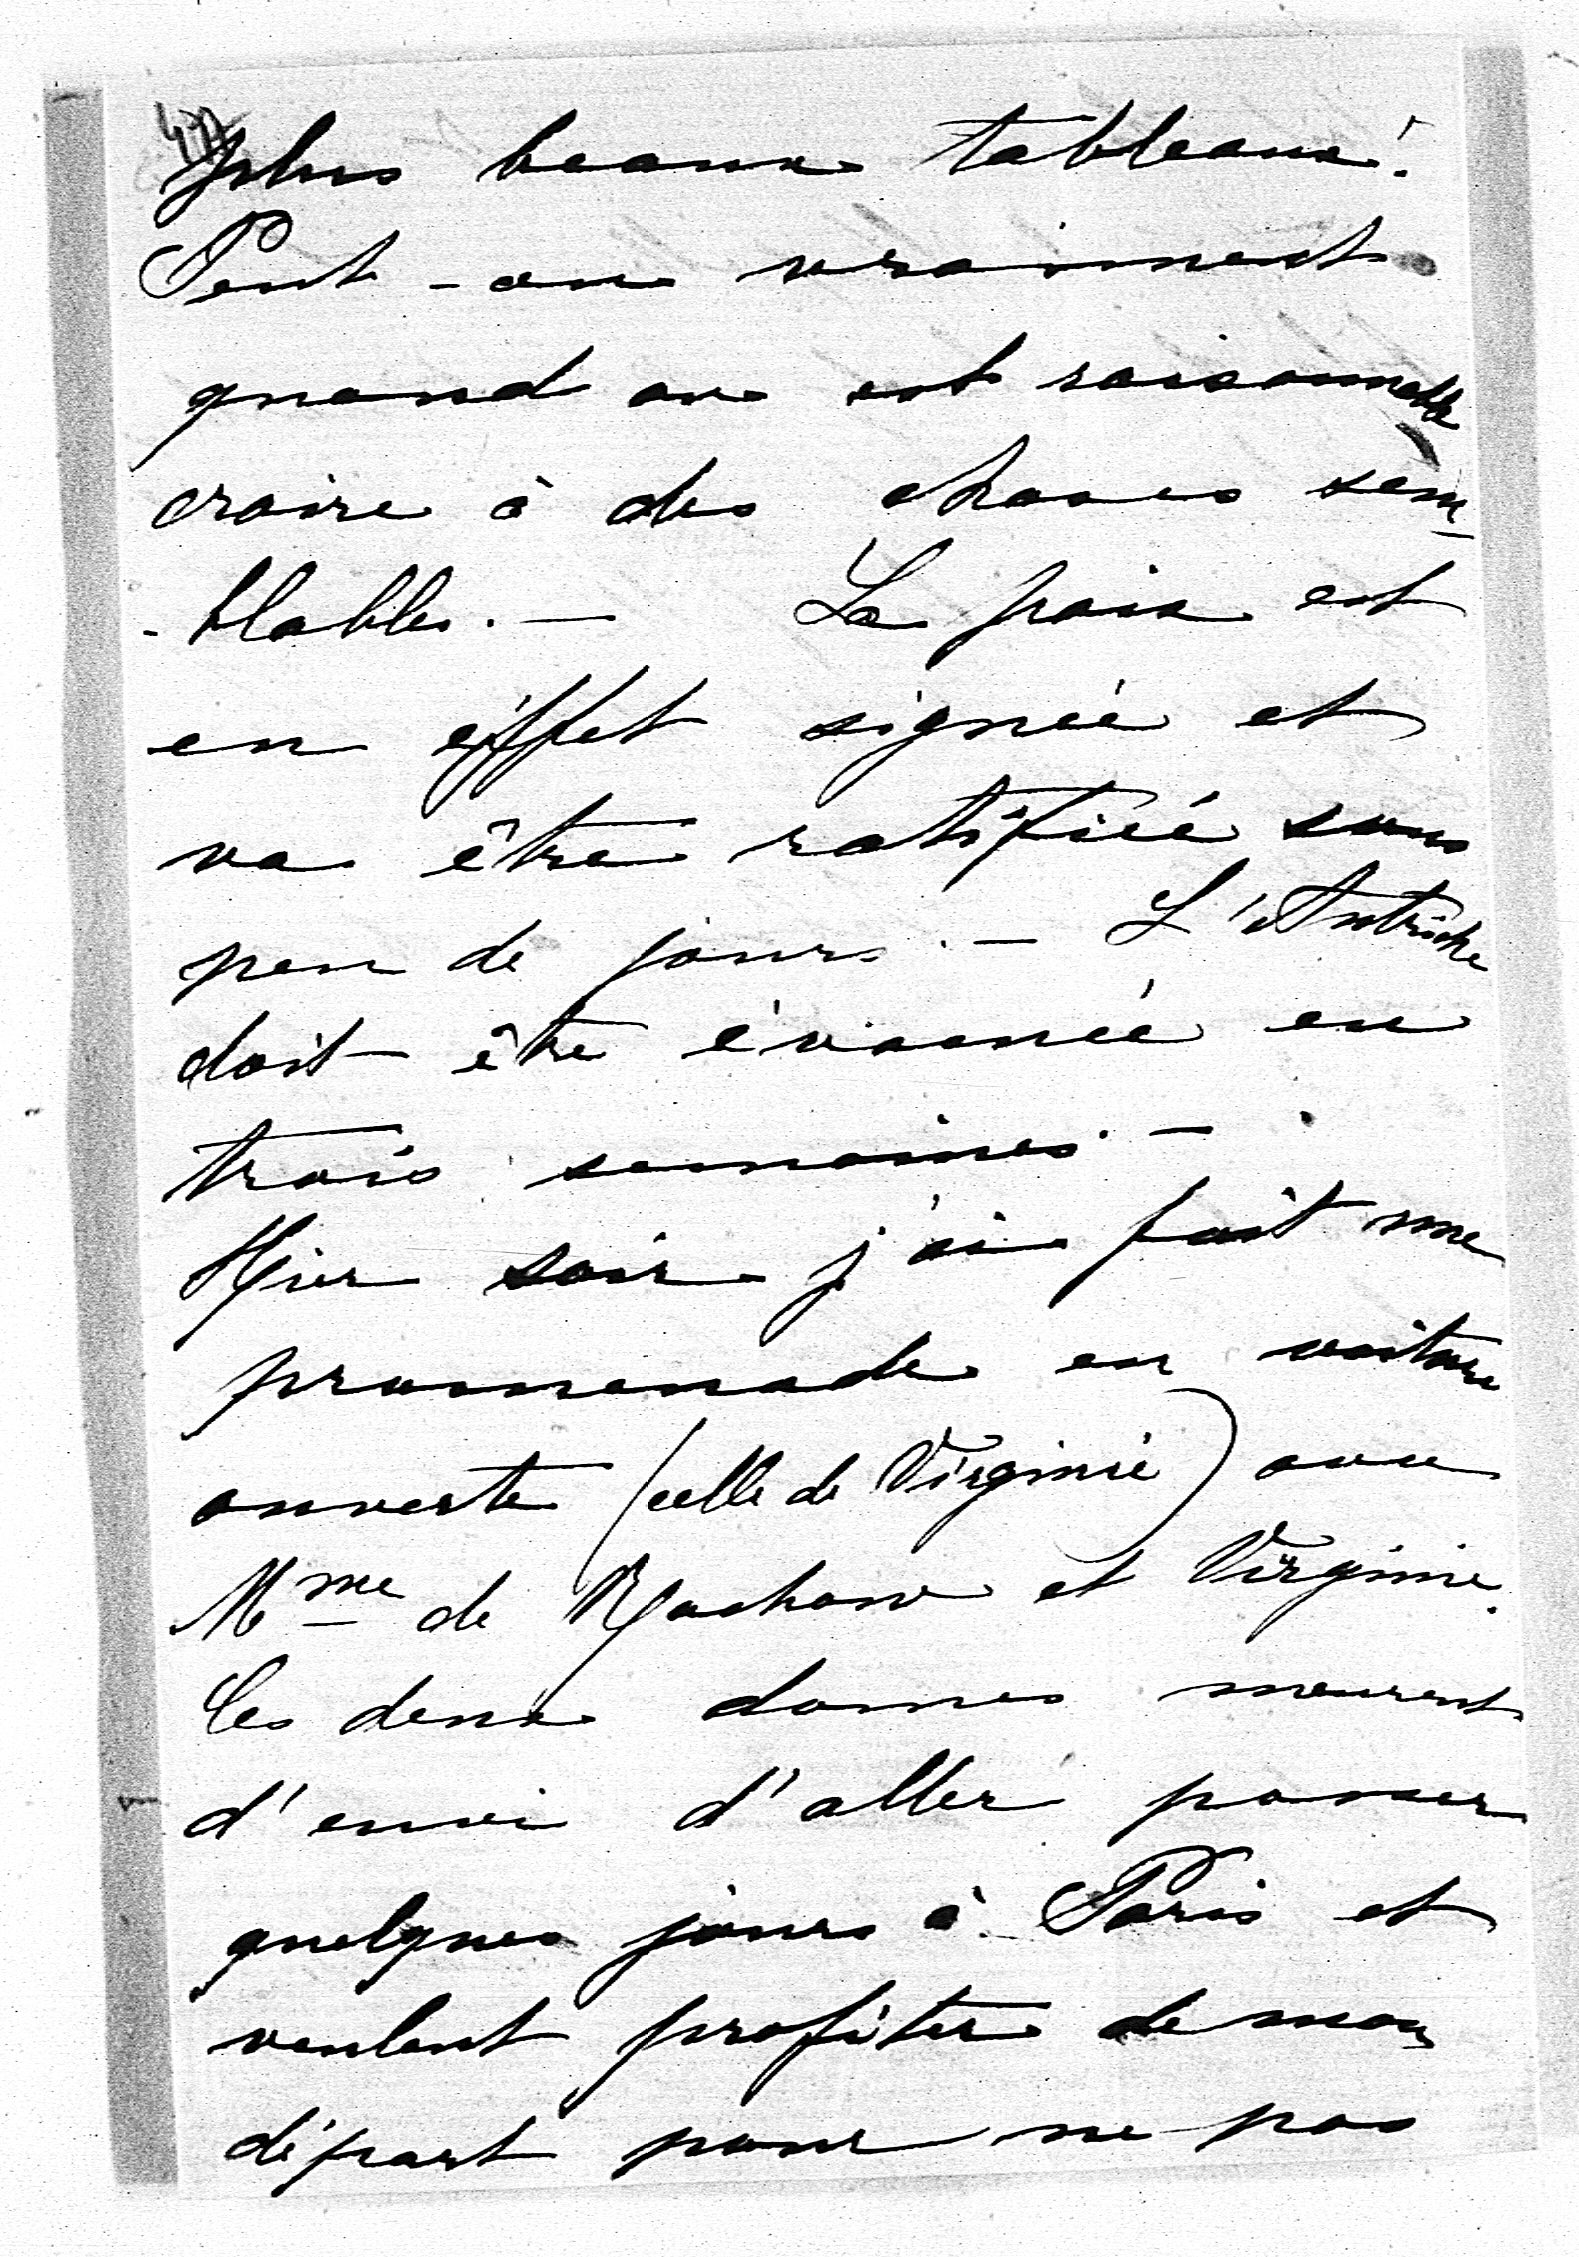 plus beaux tableaux!
Peut-on vraiment
quand on est raisonnable
croire à des choses sem-
-blables. — La paix est
en éffet signée et
va être ratifiée sous
peu de jours. — L'Autriche
doit être évacuée en
trois semaines. —
Hier soir j'ai fait une
promenade en voiture
ouverte (celle de Virginie) avec
Mme de Rochow et Virginie.
Ces deux dames meurent
d'envi d'aller passer
quelques jours à Paris et
veulent profiter de mon
départ pour ne pas